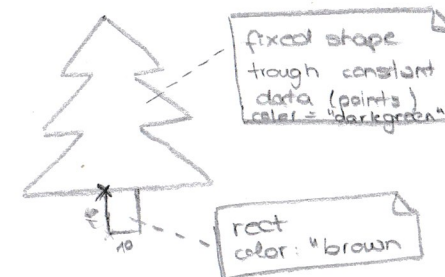 fixed shape
trough constant
data (points)
color = "darkgreen"
rect
color: "brown
10